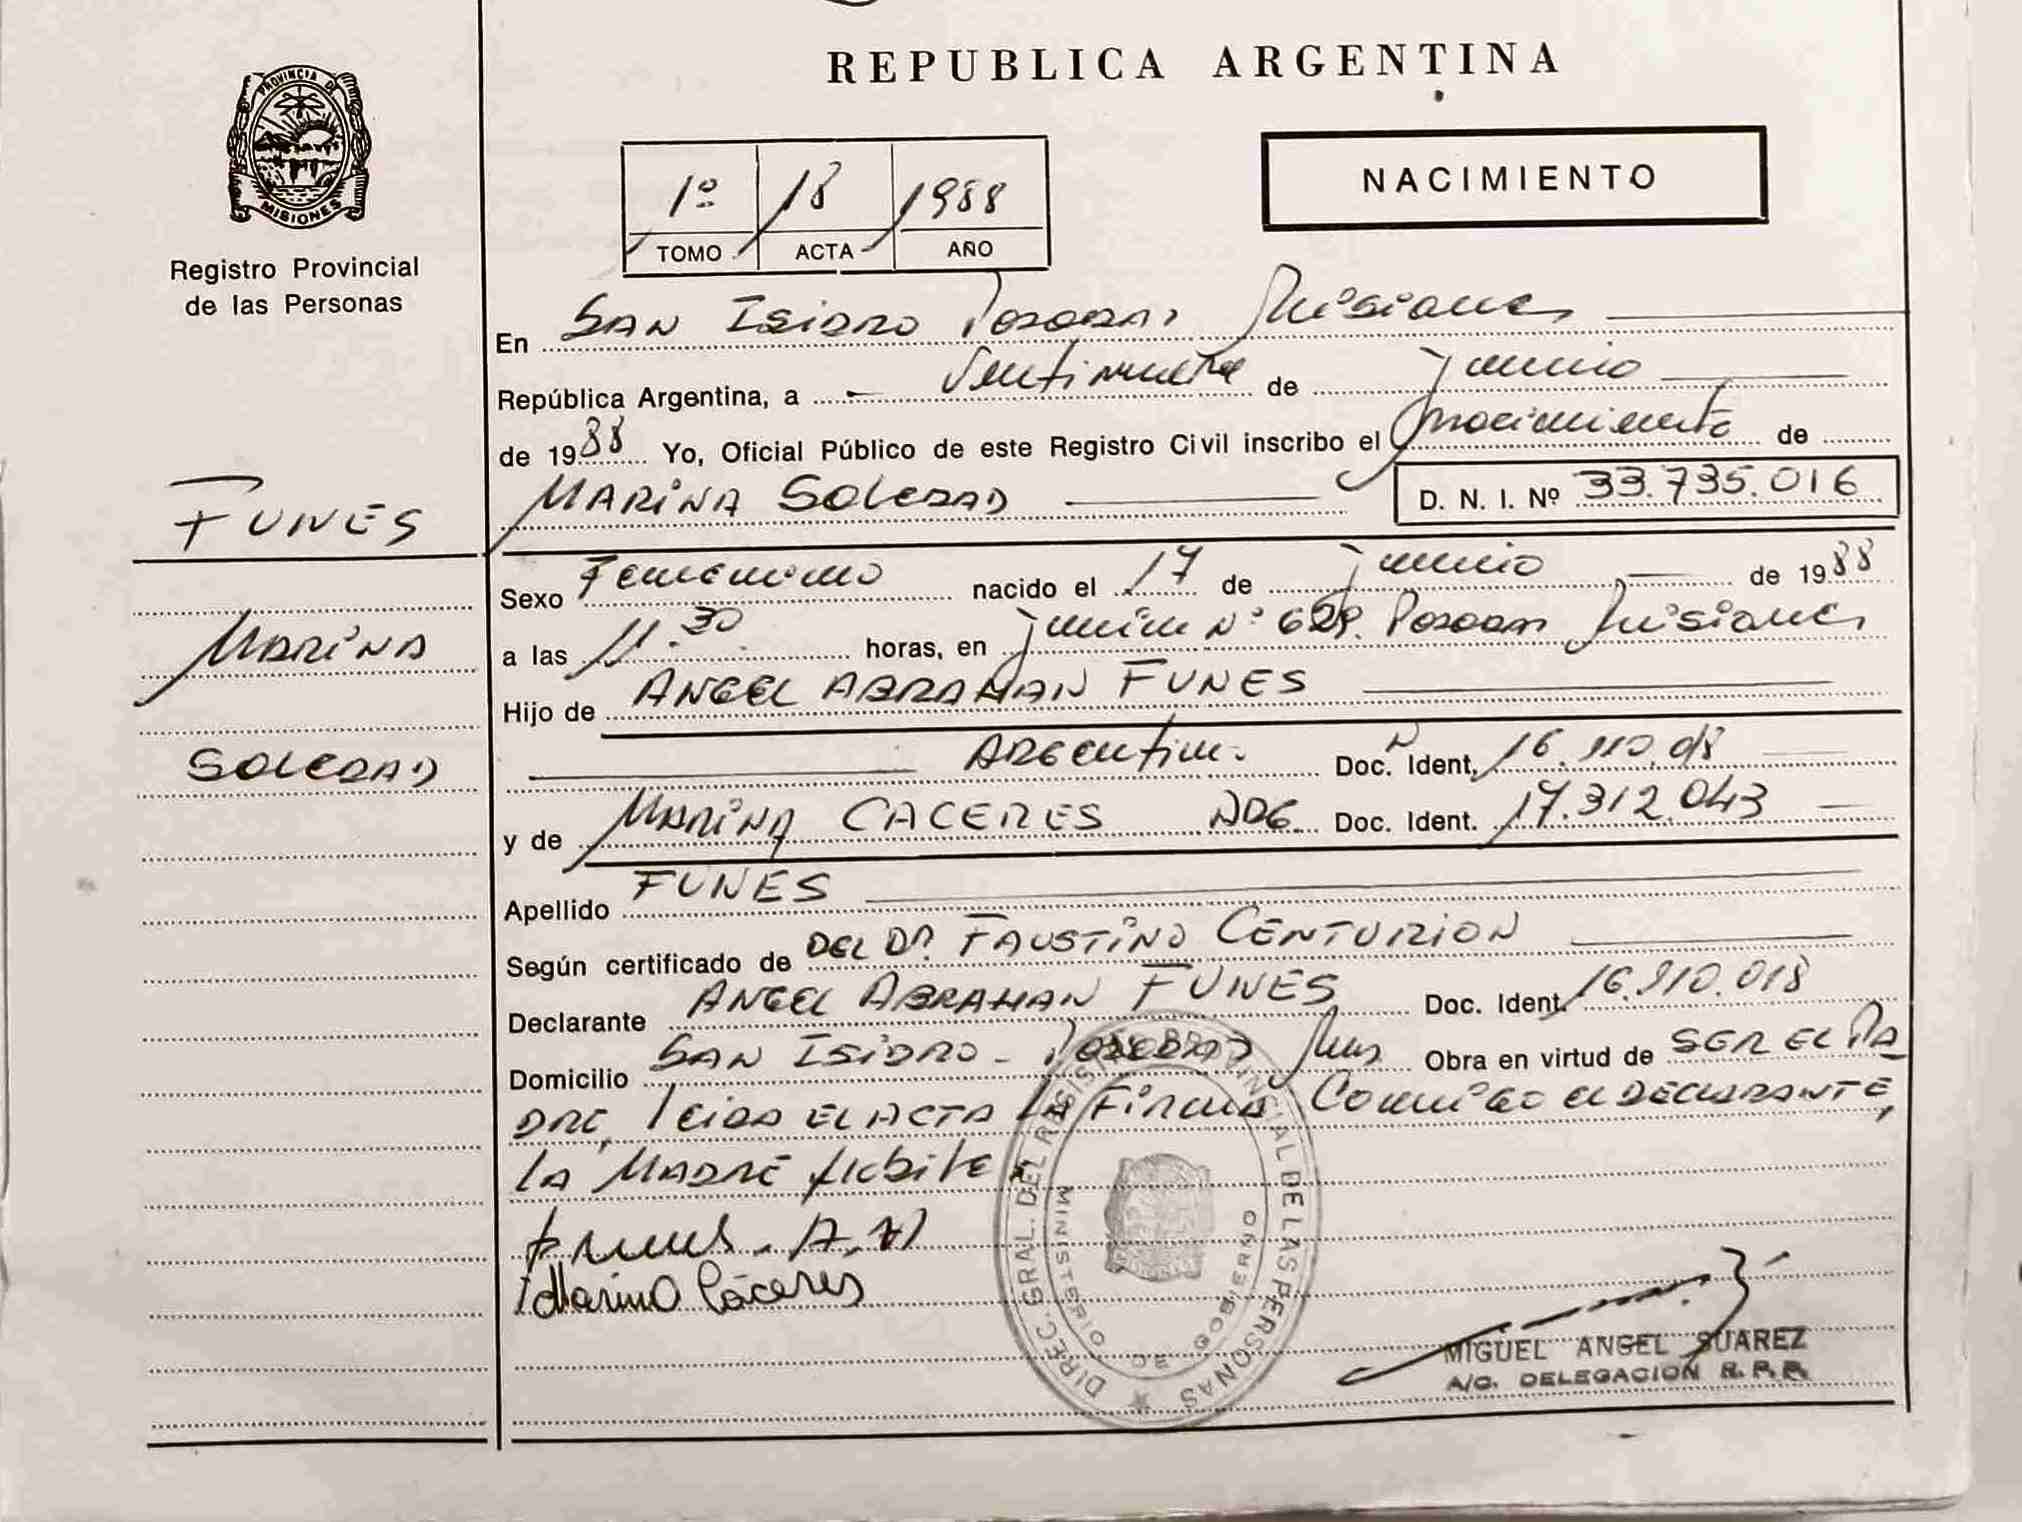 PROVINCIA DE
MISIONES
Registro Provincial
de las Personas
FUNES
MARINA
SOLEDAD
REPUBLICA ARGENTINA
1º 18 1988
TOMO ACTA AÑO
NACIMIENTO
En SAN ISIDRO Posadas Misiones
República Argentina, a Veintinueve de junio
de 1988 Yo, Oficial Público de este Registro Civil inscribo el nacimiento de
MARINA SOLEDAD D. N. I. Nº 33.735.016
Sexo Femenino nacido el 17 de junio de 1988
a las 11.30 horas, en Junín Nº 629. Posadas Misiones
Hijo de ANGEL ABRAHAN FUNES
ARGENTIN. Doc. Ident.
y de MARINA CACERES Doc. Ident. 17.312.043
Apellido FUNES
Según certificado de DEL Dr. FAUSTINO CENTURION
Declarante ANGEL ABRAHAN FUNES Doc. Ident. 16.910.018
Domicilio SAN ISIDRO - POSADAS Mnes Obra en virtud de SER EL PA
DRE, leida EL ACTA LA Firma Conmigo el DECLARANTE,
LA MADRE
Funes. A. A
Marina Cáceres
DIREC. GRAL. DEL REGISTRO PROVINCIAL DE LAS PERSONAS
MINISTERIO DE GOBIERNO
MIGUEL ANGEL SUAREZ
A/C. DELEGACION R.P.P.